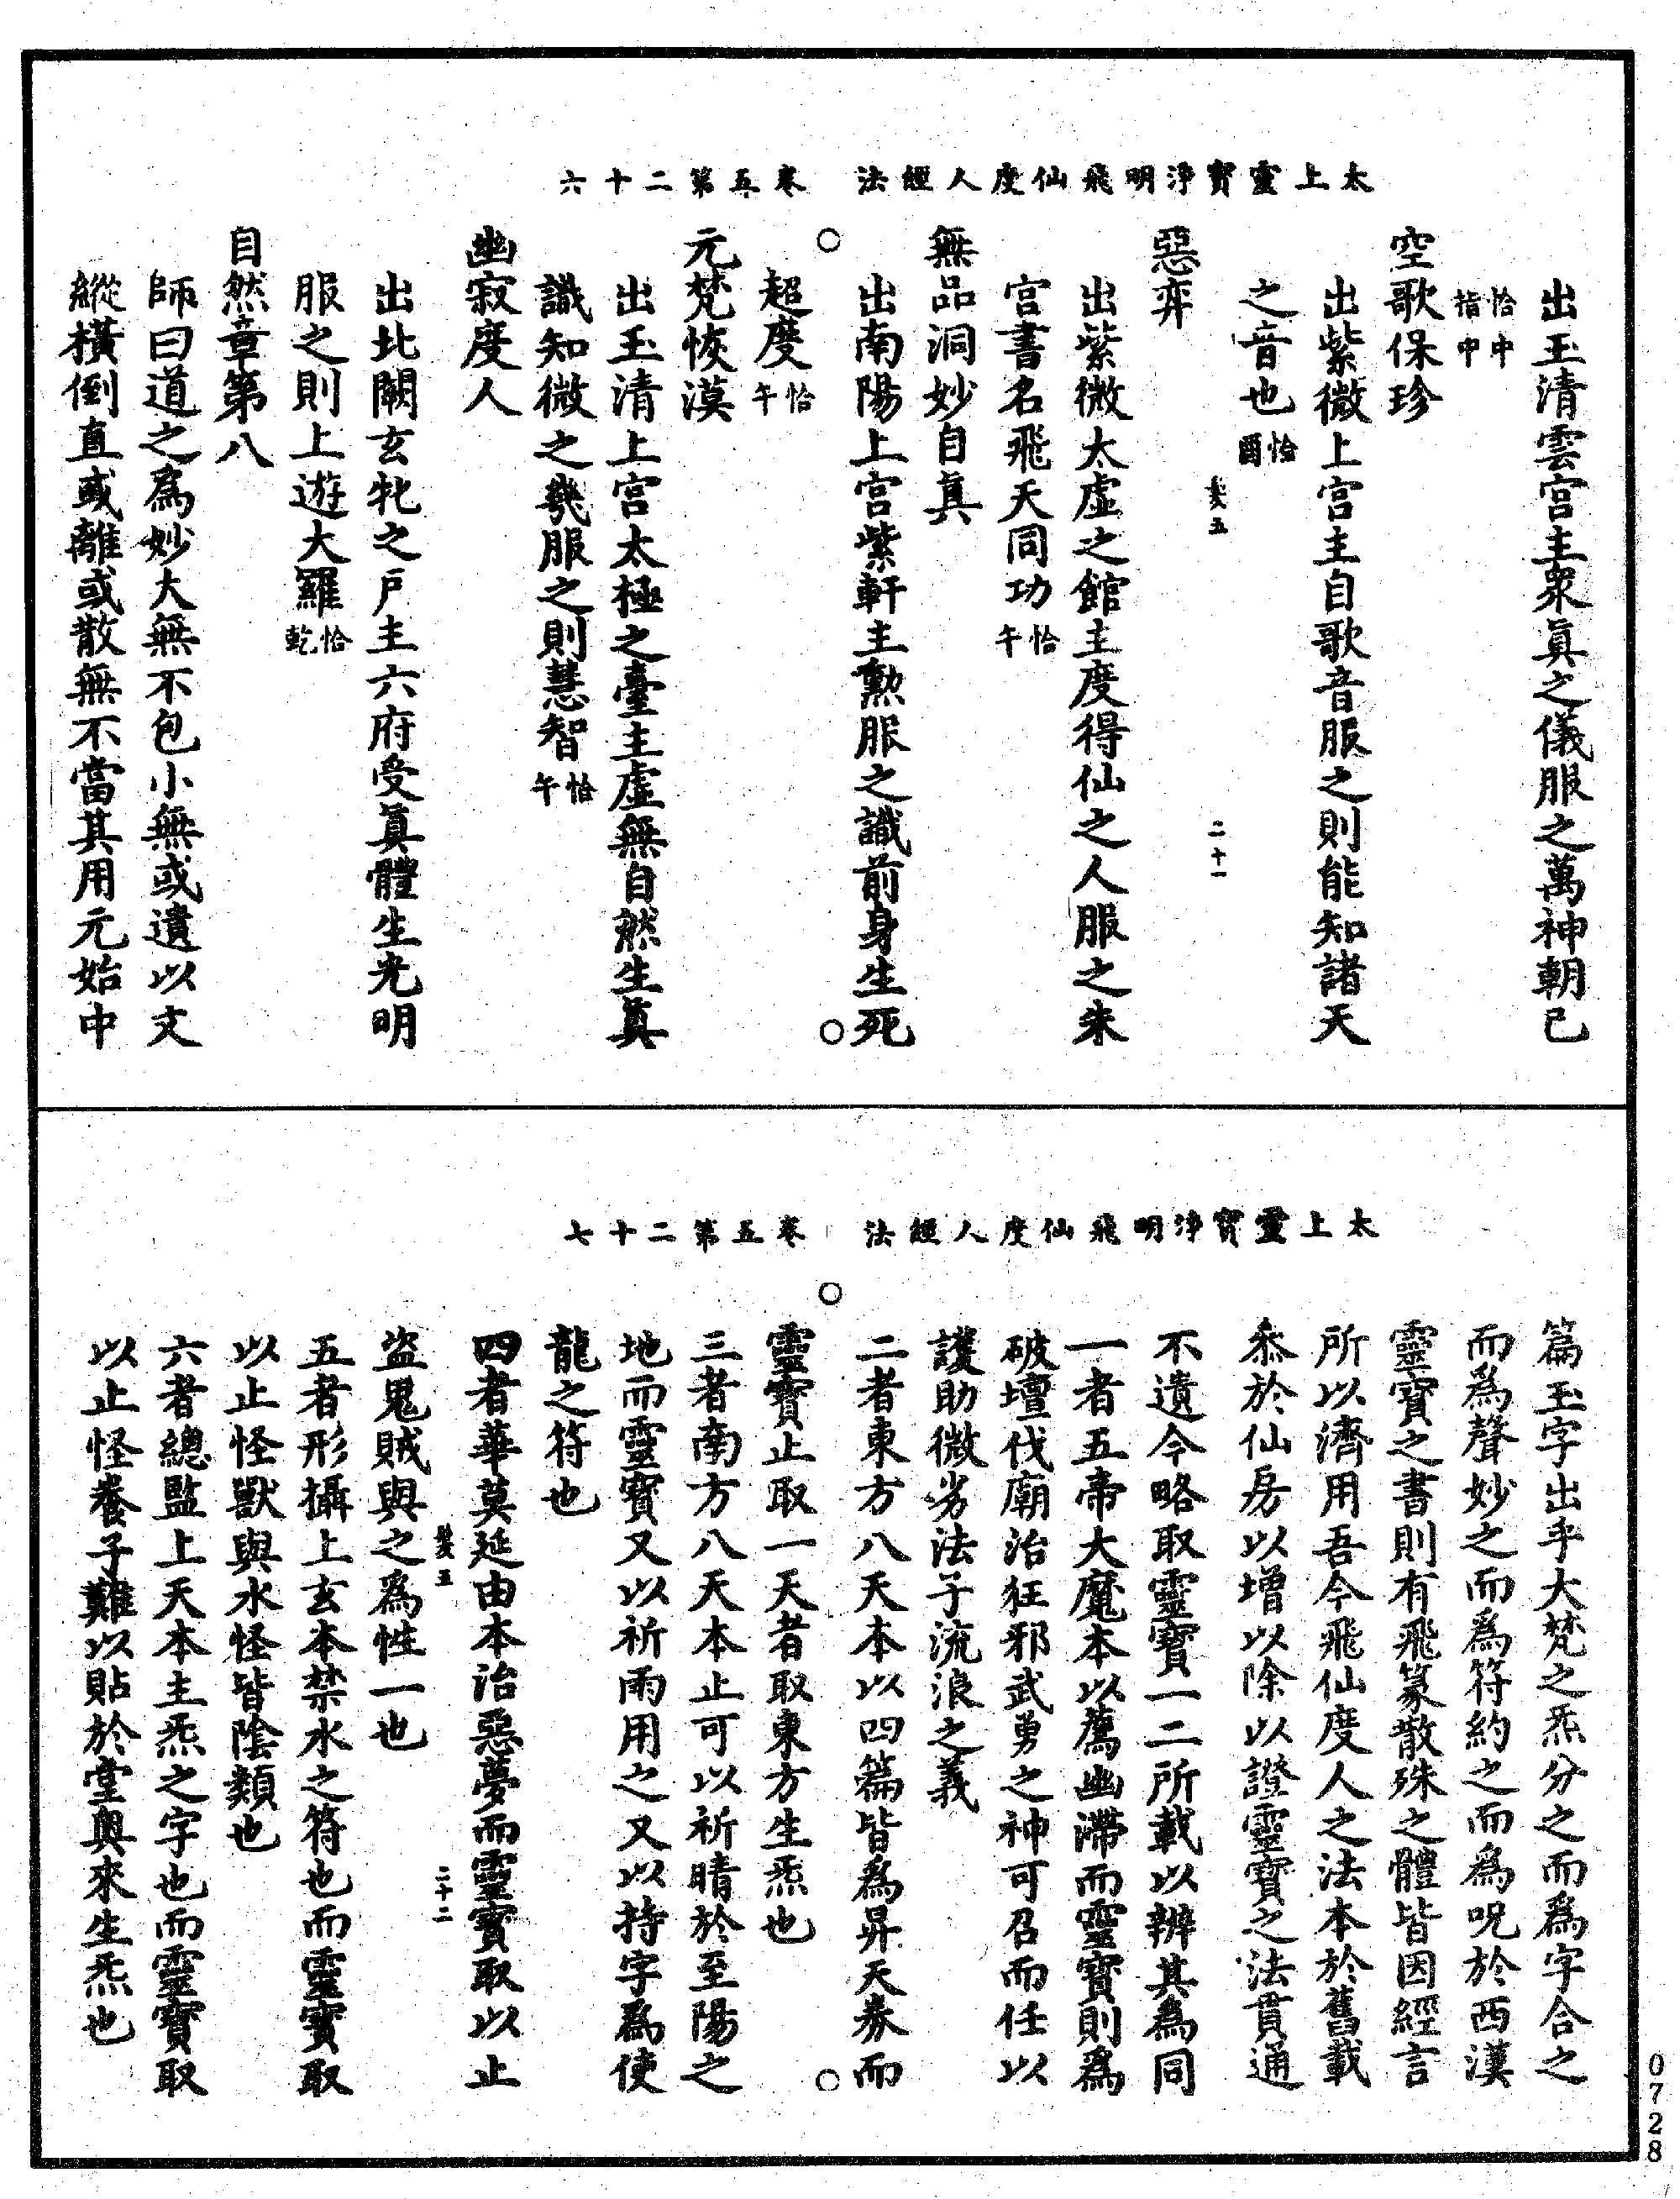 太上靈寶淨明飛仙度人經法　卷五第二十六
出玉清雲宮主衆眞之儀服之萬神朝已
恰中
指中
空歌保珍
出紫微上宮主自歌音服之則能知諸天
之音也恰酉
惡弈
髮五　二十一
出紫微太虛之館主度得仙之人服之朱
宮書名飛天同功恰午
無品洞妙自眞
出南陽上宮紫軒主勲服之識前身生死
超度恰午
元梵恢漠
出玉清上宮太極之臺主虛無自然生眞
識知微之幾服之則慧智恰午
幽寂度人
出北闕玄牝之戶主六府受眞體生光明
服之則上遊大羅恰乾
自然章第八
師曰道之爲妙大無不包小無或遺以文
縱橫倒直或離或散無不當其用元始中
太上靈寶淨明飛仙度人經法　卷五第二十七
篇玉字出乎大梵之炁分之而爲字合之
而爲聲妙之而爲符約之而爲呪於西漢
靈寶之書則有飛篆散殊之體皆因經言
所以濟用吾今飛仙度人之法本於舊載
忝於仙房以增以除以證靈寶之法貫通
不遺今略取靈寶一二所載以辨其爲同
一者五帝大魔本以薦幽滯而靈寶則爲
破壇伐廟治狂邪武勇之神可召而任以
護助微劣法子流浪之義
二者東方八天本以四篇皆爲昇天券而
靈寶止取一天者取東方生炁也
三者南方八天本止可以祈晴於至陽之
地而靈寶又以祈雨用之又以持字爲使
龍之符也
四者華莫延由本治惡夢而靈寶取以止
盜鬼賊與之爲性一也
髮五　二十二
五者形攝上玄本禁水之符也而靈寶取
以止怪獸與水怪皆陰類也
六者總監上天本主炁之字也而靈寶取
以止怪養子難以貼於堂奧來生炁也
0728